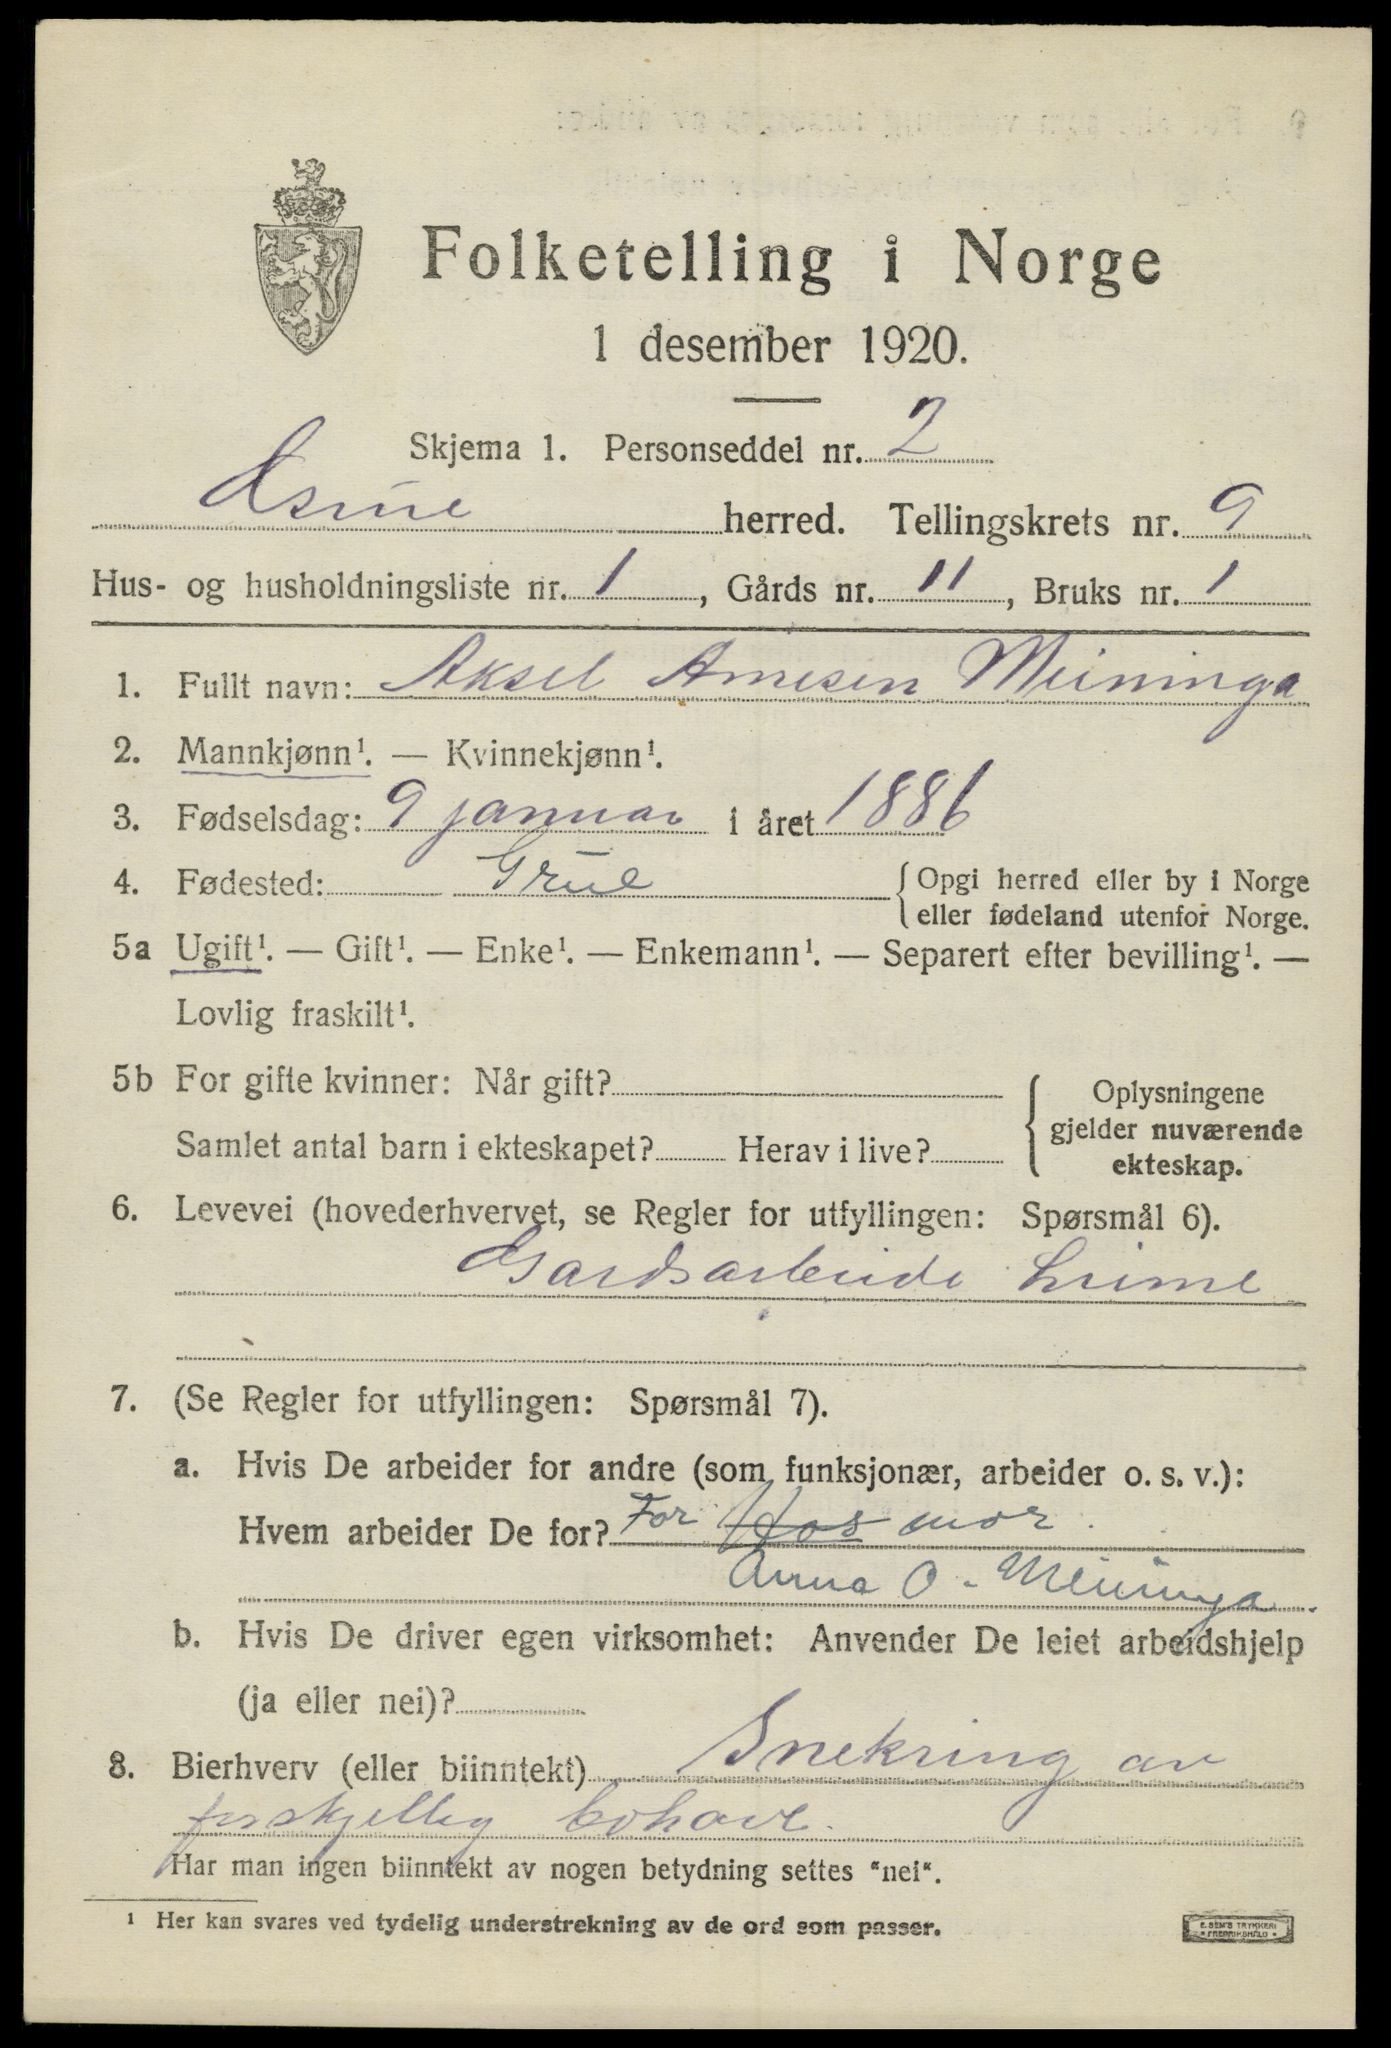 Folketelling i Norge
1 desember 1920.
Skjema 1. Personseddel nr. 2
Grue herred. Tellingskrets nr. 9
Hus- og husholdningsliste nr. 1, Gårds nr. 11, Bruks nr. 1
1. Fullt navn: Aksel Arnesen Meininga
2. Mannkjønn¹. — Kvinnekjønn¹.
3. Fødselsdag: 9 januar i året 1886
4. Fødested: Grue { Opgi herred eller by i Norge
eller fødeland utenfor Norge.
5a Ugift¹. — Gift¹. — Enke¹. — Enkemann¹. — Separert efter bevilling¹. —
Lovlig fraskilt¹.
5b For gifte kvinner: Når gift?
Samlet antal barn i ekteskapet? Herav i live?
{ Oplysningene
gjelder nuværende
ekteskap.
6. Levevei (hovederhvervet, se Regler for utfyllingen: Spørsmål 6).
Gardsarbeide
7. (Se Regler for utfyllingen: Spørsmål 7).
a. Hvis De arbeider for andre (som funksjonær, arbeider o. s. v.):
Hvem arbeider De for? For Hos mor.
Anna O. Meininga.
b. Hvis De driver egen virksomhet: Anvender De leiet arbeidshjelp
(ja eller nei)?
8. Bierhverv (eller biinntekt) Snekring av
forskjellig bohave.
Har man ingen biinntekt av nogen betydning settes "nei".
¹ Her kan svares ved tydelig understrekning av de ord som passer.
E. SEM'S TRYKKERI
FREDRIKSHALD